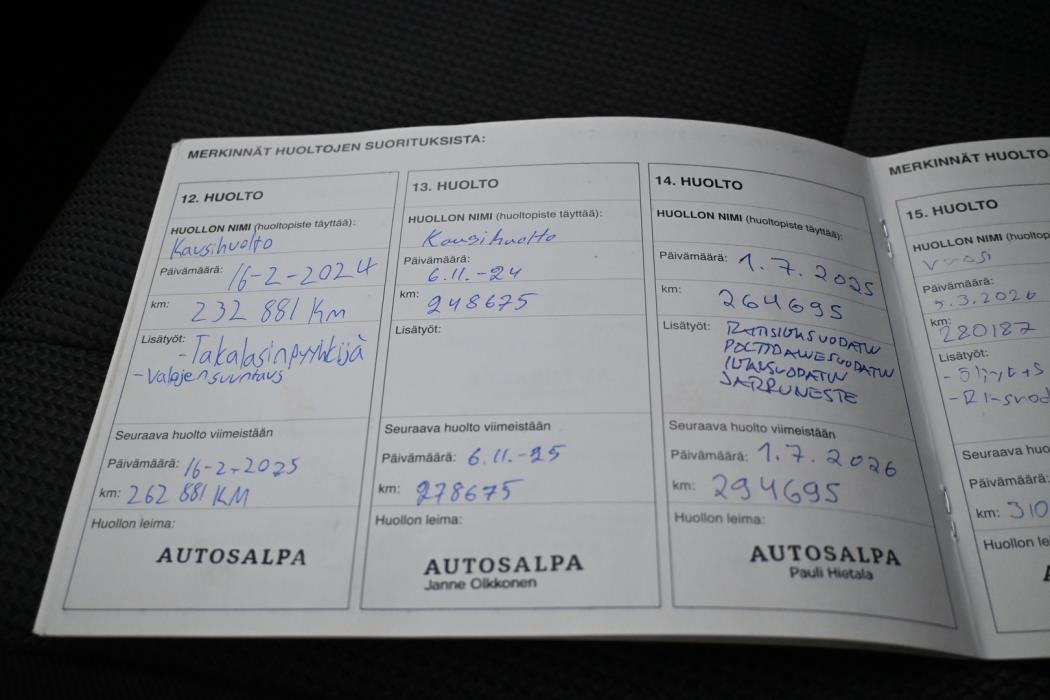 MERKINNÄT HUOLTOJEN SUORITUKSISTA:
12. HUOLTO
HUOLLON NIMI (huoltopiste täyttää):
Kausihuolto
Päivämäärä: 16-2-2024
km: 232 881 Km
Lisätyöt: -Takalasinpyyhkijä
-Valojen suuntaus
Seuraava huolto viimeistään
Päivämäärä: 16-2-2025
km: 262 881 KM
Huollon leima:
AUTOSALPA
13. HUOLTO
HUOLLON NIMI (huoltopiste täyttää):
Kausihuolto
Päivämäärä:
6.11.-24
km: 248675
Lisätyöt:
Seuraava huolto viimeistään
Päivämäärä: 6.11.-25
km: 278675
Huollon leima:
AUTOSALPA
Janne Olkkonen
14. HUOLTO
HUOLLON NIMI (huoltopiste täyttää):
Päivämäärä: 1.7.2025
km: 264695
Lisätyöt: RAITISILMASUODATIN
POLTTOAINESUODATIN
ILMANSUODATIN
JARRUNESTE
Seuraava huolto viimeistään
Päivämäärä: 1.7.2026
km: 294695
Huollon leima:
AUTOSALPA
Pauli Hietala
MERKINNÄT HUOLTO
15. HUOLTO
HUOLLON NIMI (huoltop
vuosi
Päivämäärä:
5.3.2026
km:
280187
Lisätyöt:
- Öljyt+S
- RI-suod
Seuraava huo
Päivämäärä:
km: 310
Huollon le